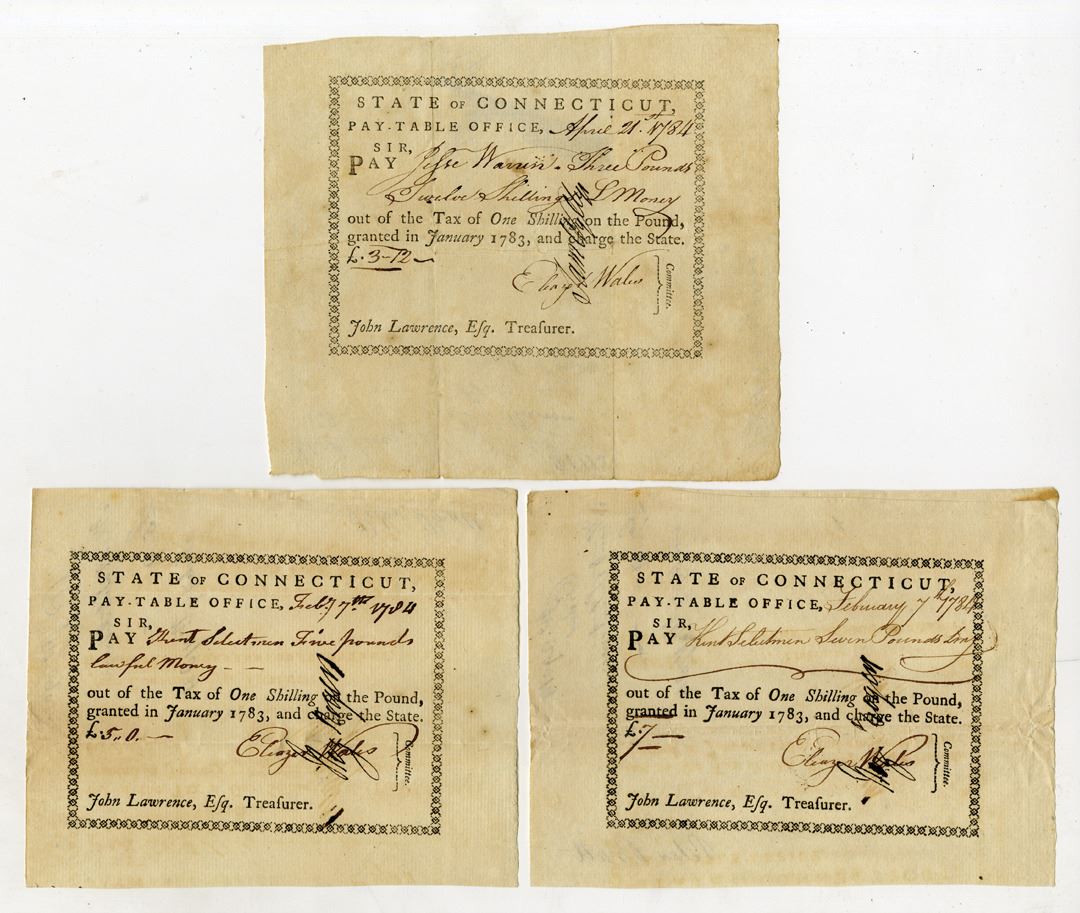 STATE OF CONNECTICUT,
PAY-TABLE OFFICE, April 21.st 1784
SIR,
PAY Jesse Warren - Three Pounds
Twelve Shillings L Money
out of the Tax of One Shilling on the Pound,
granted in January 1783, and charge the State.
£. 3-12-
Eleazer Wales
Committee.
John Lawrence, Esq. Treasurer.
STATE OF CONNECTICUT,
PAY-TABLE OFFICE, Feby 7th 1784
SIR,
PAY Kent Selectmen Five pounds
lawful Money - -
out of the Tax of One Shilling on the Pound,
granted in January 1783, and charge the State.
£. 5,,0.-
Eleazer Wales
Committee.
John Lawrence, Esq. Treasurer.
STATE OF CONNECTICUT,
PAY-TABLE OFFICE, February 7th 1784
SIR,
PAY Kent Selectmen Seven Pounds
out of the Tax of One Shilling on the Pound,
granted in January 1783, and charge the State.
£. 7-
Eleazer Wales
Committee.
John Lawrence, Esq. Treasurer.